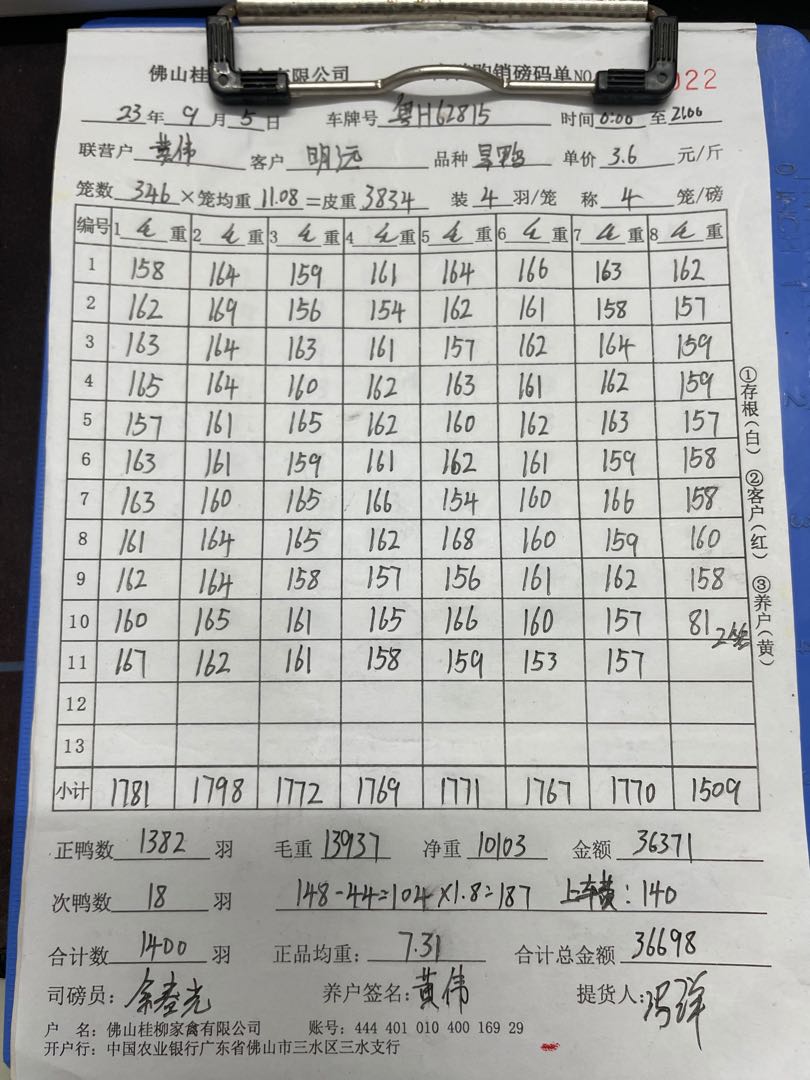 佛山桂 有限公司 购销磅码单NO. 022
23年 9月 5日 车牌号 粤H62815 时间 0:00 至
联营户 黄伟 客户 明远 品种 旱鸭 单价 3.6 元/斤
笼数 346 ×笼均重 11.08 =皮重 3834 装 4 羽/笼 称 4 笼/磅
编号 1 毛 重 2 毛 重 3 毛 重 4 毛 重 5 毛 重 6 毛 重 7 毛 重 8 毛 重
1 158 164 159 161 164 166 163 162
2 162 169 156 154 162 161 158 157
3 163 164 163 161 157 162 164 159
4 165 164 160 162 163 161 162 159
5 157 161 165 162 160 162 163 157
6 163 161 159 161 162 161 159 158
7 163 160 165 166 154 160 166 158
8 161 164 165 162 168 160 159 160
9 162 164 158 157 156 161 162 158
10 160 165 161 165 166 160 157 81 2笼
11 167 162 161 158 159 153 157
12
13
小计 1781 1798 1772 1769 1771 1767 1770 1509
①存根(白) ②客户(红) ③养户(黄)
正鸭数 1382 羽 毛重 13937 净重 10103 金额 36371
次鸭数 18 羽 148-44=104×1.8=187 上车费:140
合计数 1400 羽 正品均重: 7.31 合计总金额 36698
司磅员: 养户签名: 黄伟 提货人: 冯洋
户 名: 佛山桂柳家禽有限公司 账号: 444 401 010 400 169 29
开户行: 中国农业银行广东省佛山市三水区三水支行